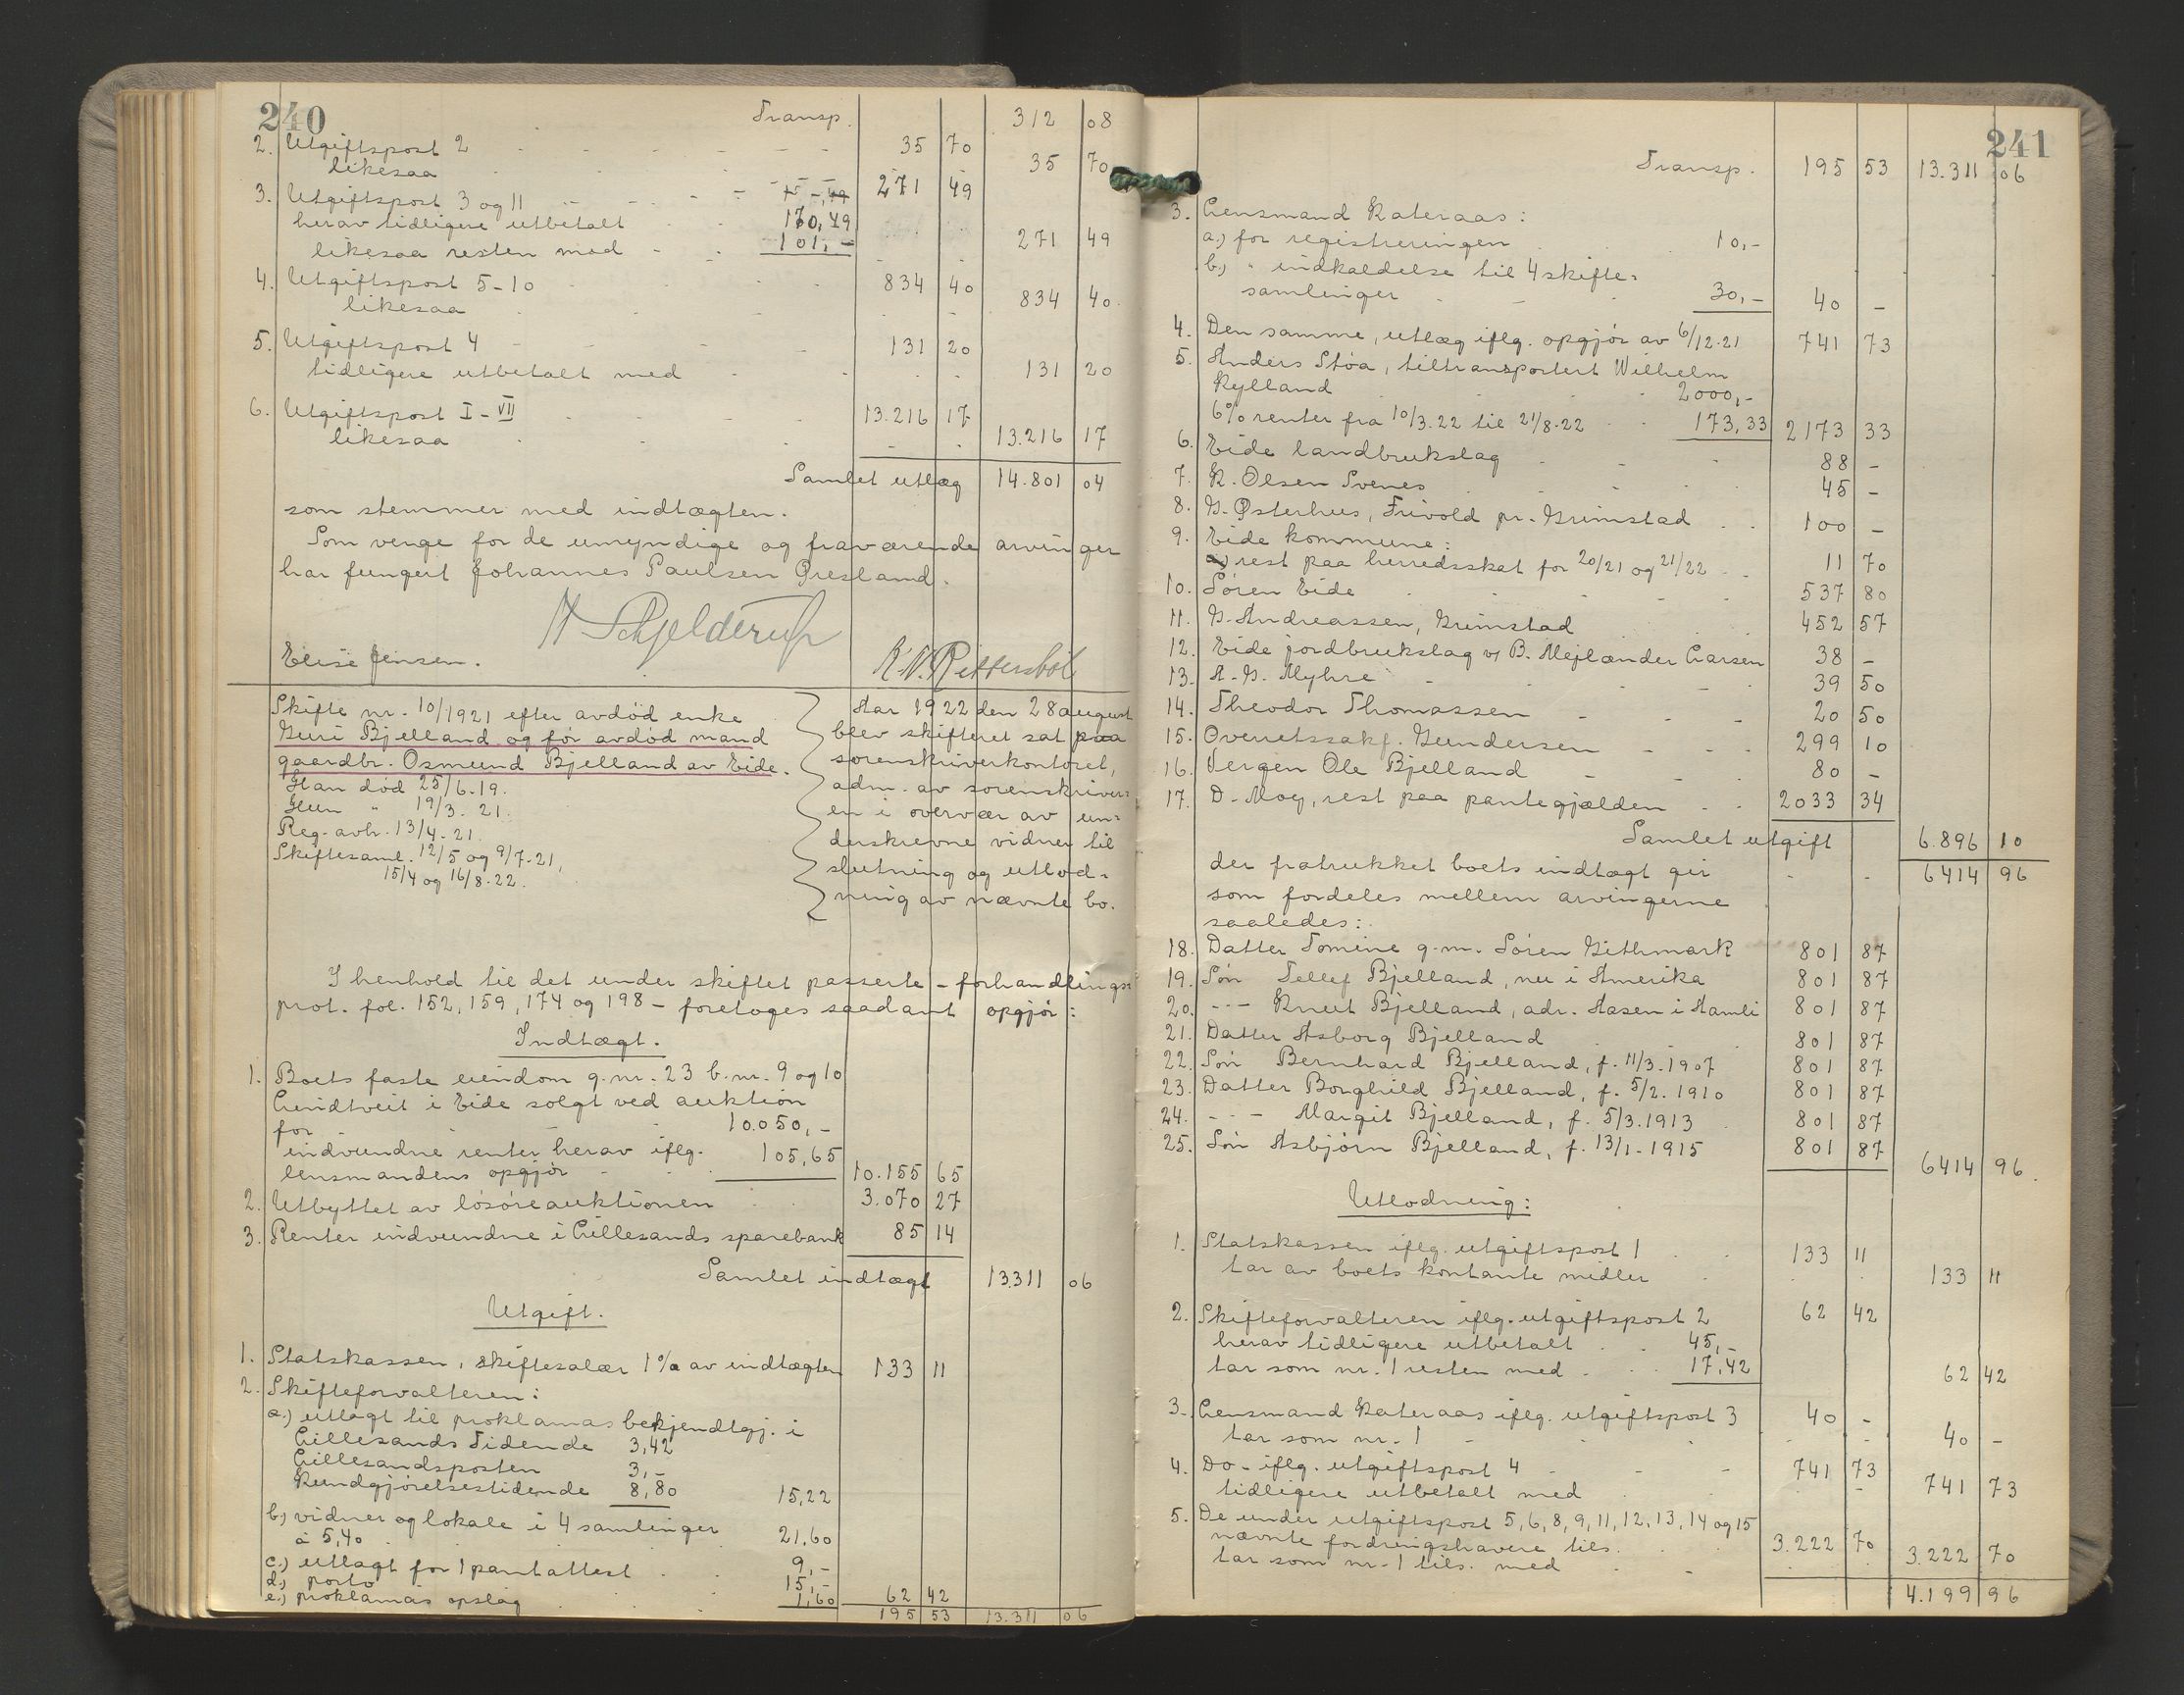 240
Transp. 312 08
2. Utgiftspost 2 35 70
likesaa 35 70
3. Utgiftspost 3 og 11 271 49
herav tidligere utbetalt 170,49
likesaa resten med 101,- 271 49
4. Utgiftspost 5-10 834 40
likesaa 834 40
5. Utgiftspost 4 131 20
tidligere utbetalt med 131 20
6. Utgiftspost I-VII 13.216 17
likesaa 13.216 17
Samlet utlæg 14.801 04
som stemmer med indtægten.
Som verge for de umyndige og fraværende arvinger
har fungert Johannes Paulsen Øresland.
H Schjelderup
Elise Jensen. K.N. Rettersböl
Skifte nr. 10/1921 efter avdöd enke
Guri Bjelland og för avdöd mand
gaardbr. Osmund Bjelland av Eide.
Han död 25/6.19.
Hun " 19/3. 21.
Reg. avh. 13/4.21.
Skiftesaml. 12/5 og 9/7.21,
15/4 og 16/8.22.
Aar 1922 den 28 august
blev skifteret sat paa
sorenskriverkontoret,
adm. av sorenskriver=
en i overvær av un=
derskrevne vidner til
slutning og utlod=
ning av nævnte bo.
I henhold til det under skiftet passerte - forhandlings=
prot. fol. 152, 159, 174 og 198 - foretoges saadant opgjör:
Indtægt.
1. Boets faste eiendom g.nr. 23 b.nr. 9 og 10
Lundtveit i Eide solgt ved auktion
for 10.050,-
indvundne renter herav iflg.
lensmandens opgjör 105,65 10.155 65
2. Utbyttet av lösöreauktionen 3.070 27
3. Renter indvundne i Lillesands sparebank 85 14
Samlet indtægt 13.311 06
Utgift.
1. Statskassen, skiftesalær 1% av indtægten 133 11
2. Skifteforvalteren:
a.) utlagt til proklamas bekjendtgj. i
Lillesands Tidende 3,42
Lillesandsposten 3,-
Kundgjörelsestidende 8,80 15,22
b.) vidner og lokale i 4 samlinger
à 5,40 21,60
c.) utlagt for 1 pantattest 9,-
d.) porto 15,-
e.) proklamas opslag 1,60 62 42
195 53 13.311 06
241
Transp. 195 53 13.311 06
3. Lensmand Kateraas:
a.) for registreringen 10,-
b.) " indkaldelse til 4 skifte=
samlinger 30,- 40 -
4. Den samme, utlæg iflg. opgjör av 6/12.21 741 73
5. Anders Stöa, tiltransportert Wilhelm
Rylland 2000,-
6% renter fra 10/3.22 til 21/8.22 173,33 2173 33
6. Eide landbrukslag 88 -
7. K. Olsen Svenes 45 -
8. G. Østerhus, Frivold pr. Grimstad 100 -
9. Eide kommune:
a) rest paa herredsskat for 20/21 og 21/22 11 70
10. Sören Eide 537 80
11. G. Andreassen, Grimstad 452 57
12. Eide jordbrukslag v/ B. Mejlænder Larsen 38 -
13. A. G. Myhre 39 50
14. Theodor Thomassen 20 50
15. Overretssakf. Gundersen 299 10
16. Vergen Ole Bjelland 80 -
17. D. Moy, rest paa pantegjælden 2033 34
Samlet utgift 6.896 10
der fratrukket boets indtægt gir 6414 96
som fordeles mellem arvingerne
saaledes:
18. Datter Tomine g.m. Sören Githmark 801 87
19. Sön Tellef Bjelland, nu i Amerika 801 87
20. -"- Knut Bjelland, adr. Aasen i Aamli 801 87
21. Datter Asborg Bjelland 801 87
22. Sön Bernhard Bjelland, f. 11/3.1907 801 87
23. Datter Borghild Bjelland, f. 5/2. 1910 801 87
24. -"- Margit Bjelland, f. 5/3.1913 801 87
25. Sön Asbjörn Bjelland, f. 13/1-1915 801 87 6414 96.
Utlodning:
1. Statskassen iflg. utgiftspost 1 133 11
tar av boets kontante midler 133 11
2. Skifteforvalteren iflg. utgiftspost 2 62 42
herav tidligere utbetalt 45,-
tar som nr. 1 resten med 17,42 62 42
3. Lensmand Kateraas iflg. utgiftspost 3 40 -
tar som nr. 1 40 -
4. Do - iflg. utgiftspost 4 741 73
tidligere utbetalt med 741 73
5. De under utgiftspost 5, 6, 8, 9, 11, 12, 13, 14 og 15
nævnte fordringshavere tils. 3.222 70
tar som nr. 1 tils. med 3.222 70
4.199 96